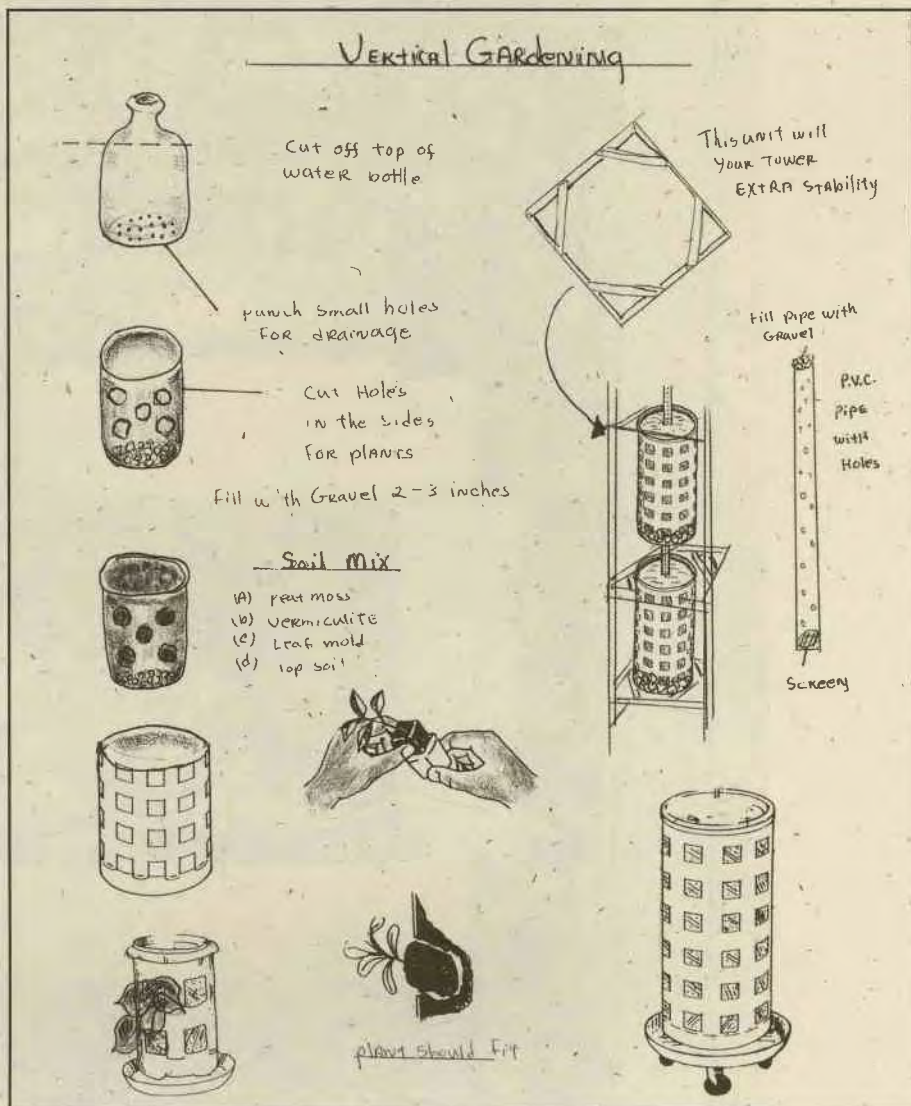 Vertical Gardening
Cut off top of
water bottle
punch small holes
For drainage
Cut Holes
in the sides
For plants
Fill with Gravel 2-3 inches
Soil Mix
(A) peat moss
(b) vermiculite
(c) Leaf mold
(d) Top soil
plant should fit
This unit will
Your Tower
Extra Stability
Fill pipe with
Gravel
P.V.C.
Pipe
with
Holes
Screen